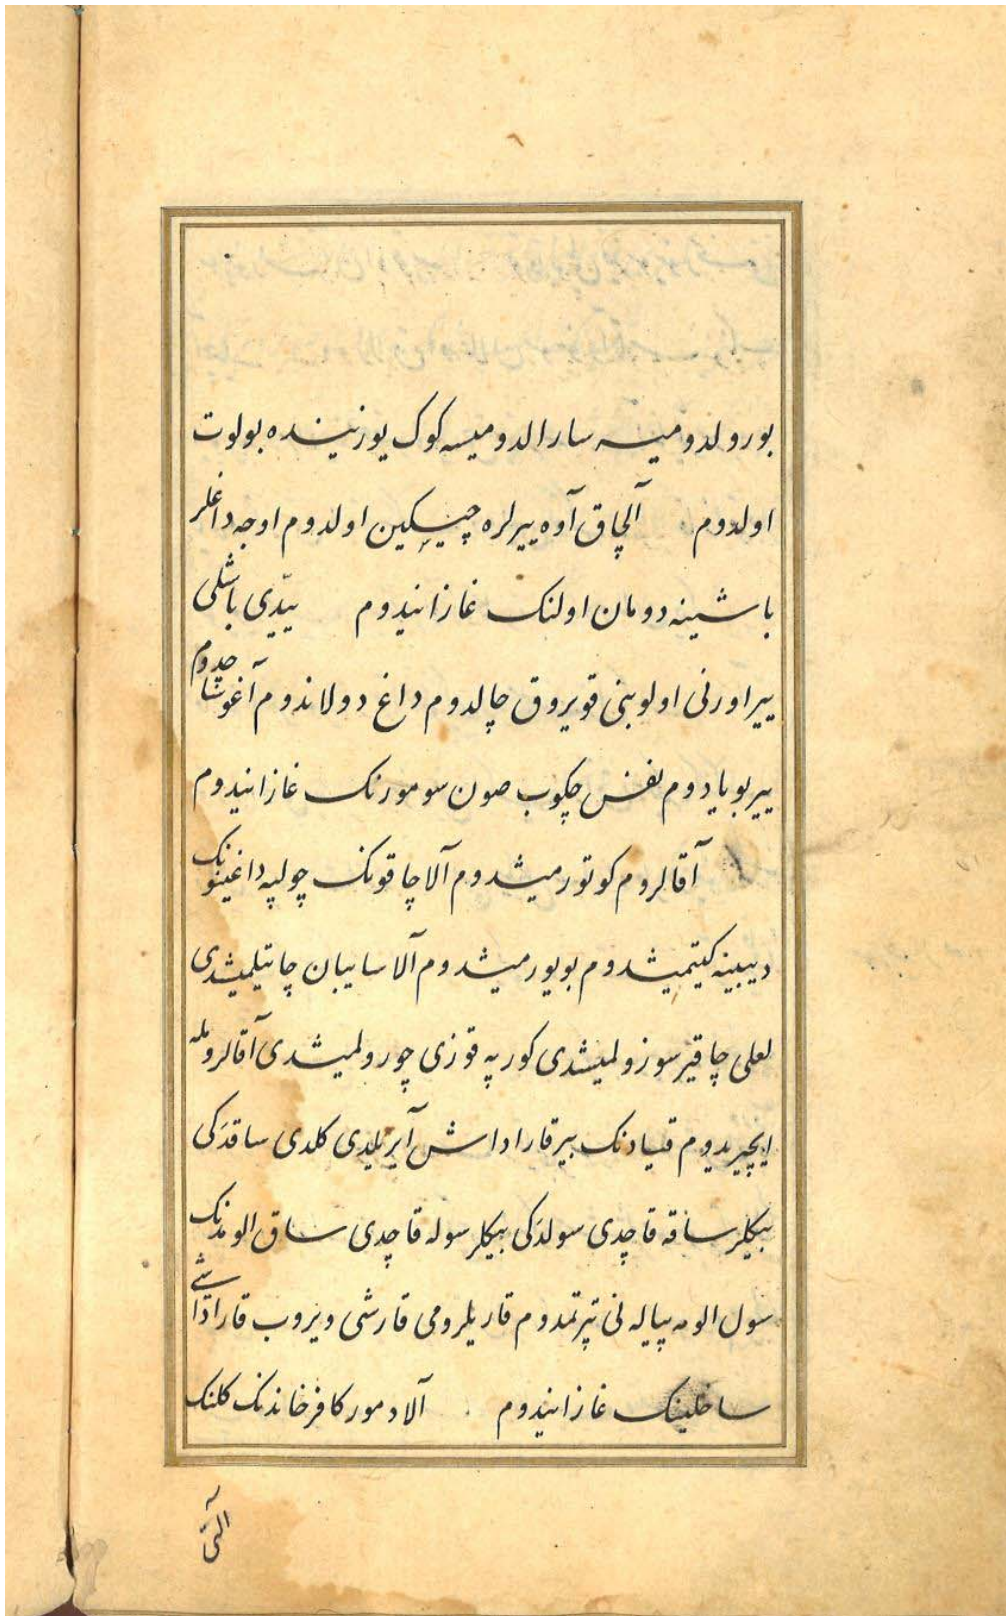 بورولدومیسه سارالدومیسه کوک یوزینده بولوت
اولدوم آلچاق آوه ییرلره چیسکین اولدوم اوجه داغلر
باشینه دومان اولنک غازانیدوم ییدّی باشلی
ییر اورنی اولوبنی قویروق چالدوم داغ دولاندوم آغو شاچدوم
ییر بویادوم نفس چکوب صون سومورنک غازانیدوم
آقالروم کوتورمیشدوم آلاچاقونک چولپه داغینونک
دیبینه کیتمیشدوم بویورمیشدوم آلا سایبان چاتیلمیشدی
لعلی چاقیر سوزولمیشدی کورپه قوزی چورولمیشدی آقالروملە
ایچیریدوم قیادنک بیر قاراداش آیریلدی کلدی ساقدَکی
بیکلر ساقه قاچدی سولدَکی بیکلر سوله قاچدی ساق الومدنک
سول الومه پیاله نی تپرتمدوم قاریلرومی قارشی ویروب قاراداشی
ساخلینک غازانیدوم آلا دمور کافر خاندنک کلنک
آلتی